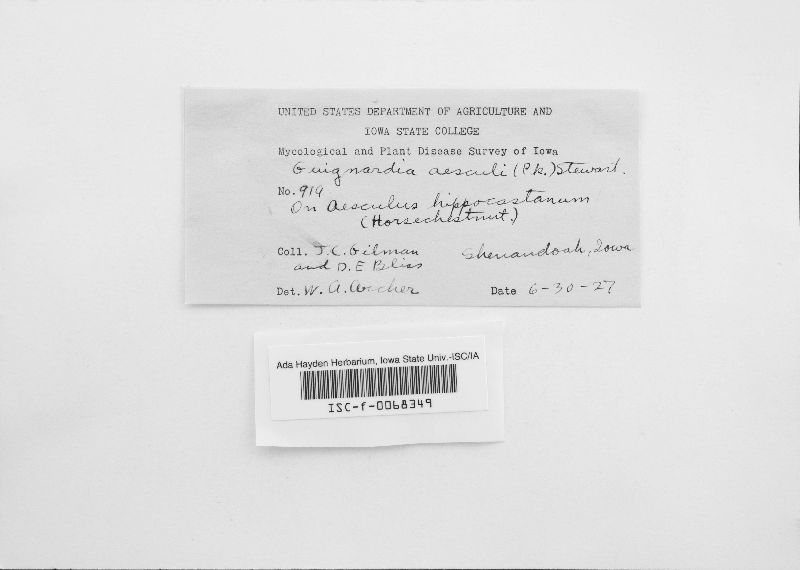 UNITED STATES DEPARTMENT OF AGRICULTURE AND
IOWA STATE COLLEGE
Mycological and Plant Disease Survey of Iowa
Guignardia aesculi (Pk.) Stewart.
No. 919
On Aesculus hippocastanum
(Horsechestnut.)
Coll. J.C. Gilman Shenandoah, Iowa
and D.E Bliss
Det. W. A. Archer Date 6-30-27
Ada Hayden Herbarium, Iowa State Univ.-ISC/IA
ISC-f-0068349